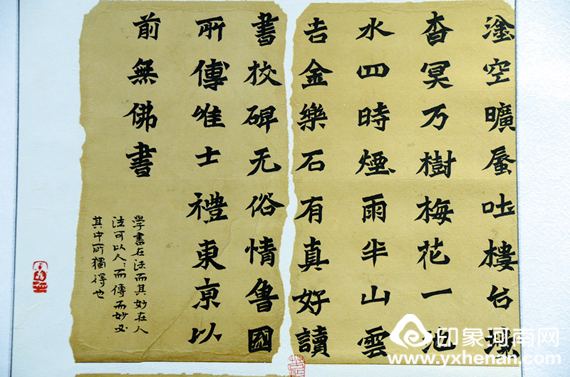 塗空曠蜃吐樓台
杳冥乃樹梅花一
水四時煙雨半山雲
吉金樂石有真好讀
書校碑无俗情魯國
所傳唯士禮東京以
前無佛書
學書在法而其妙在人
法可以人人而傳而妙必
其中所獨得也
印象河南网
www.yxhenan.com